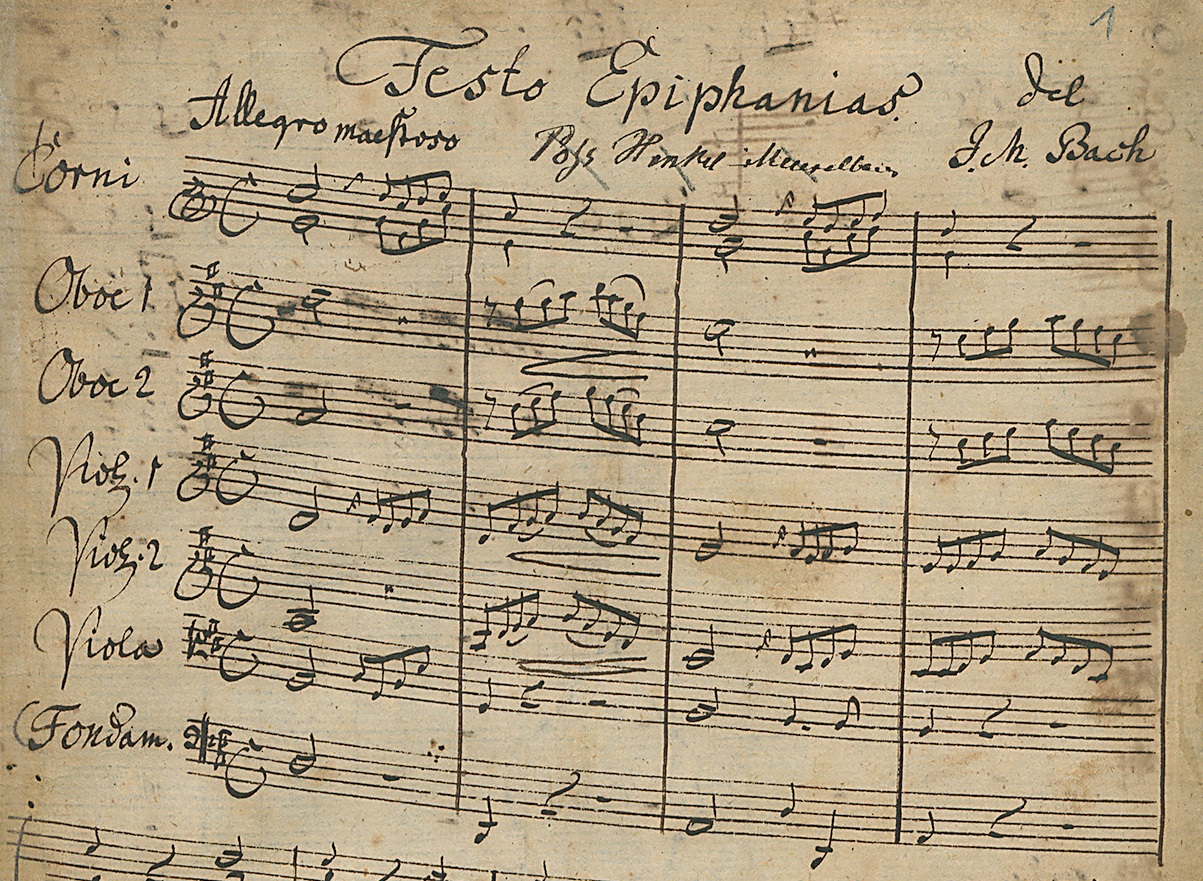 1
Festo Epiphanias. del
Allegro maestoso Poss Henkel J. M. Bach
Corni
Oboe 1
Oboe 2
Viol. 1
Viol. 2
Viola
Fondam.